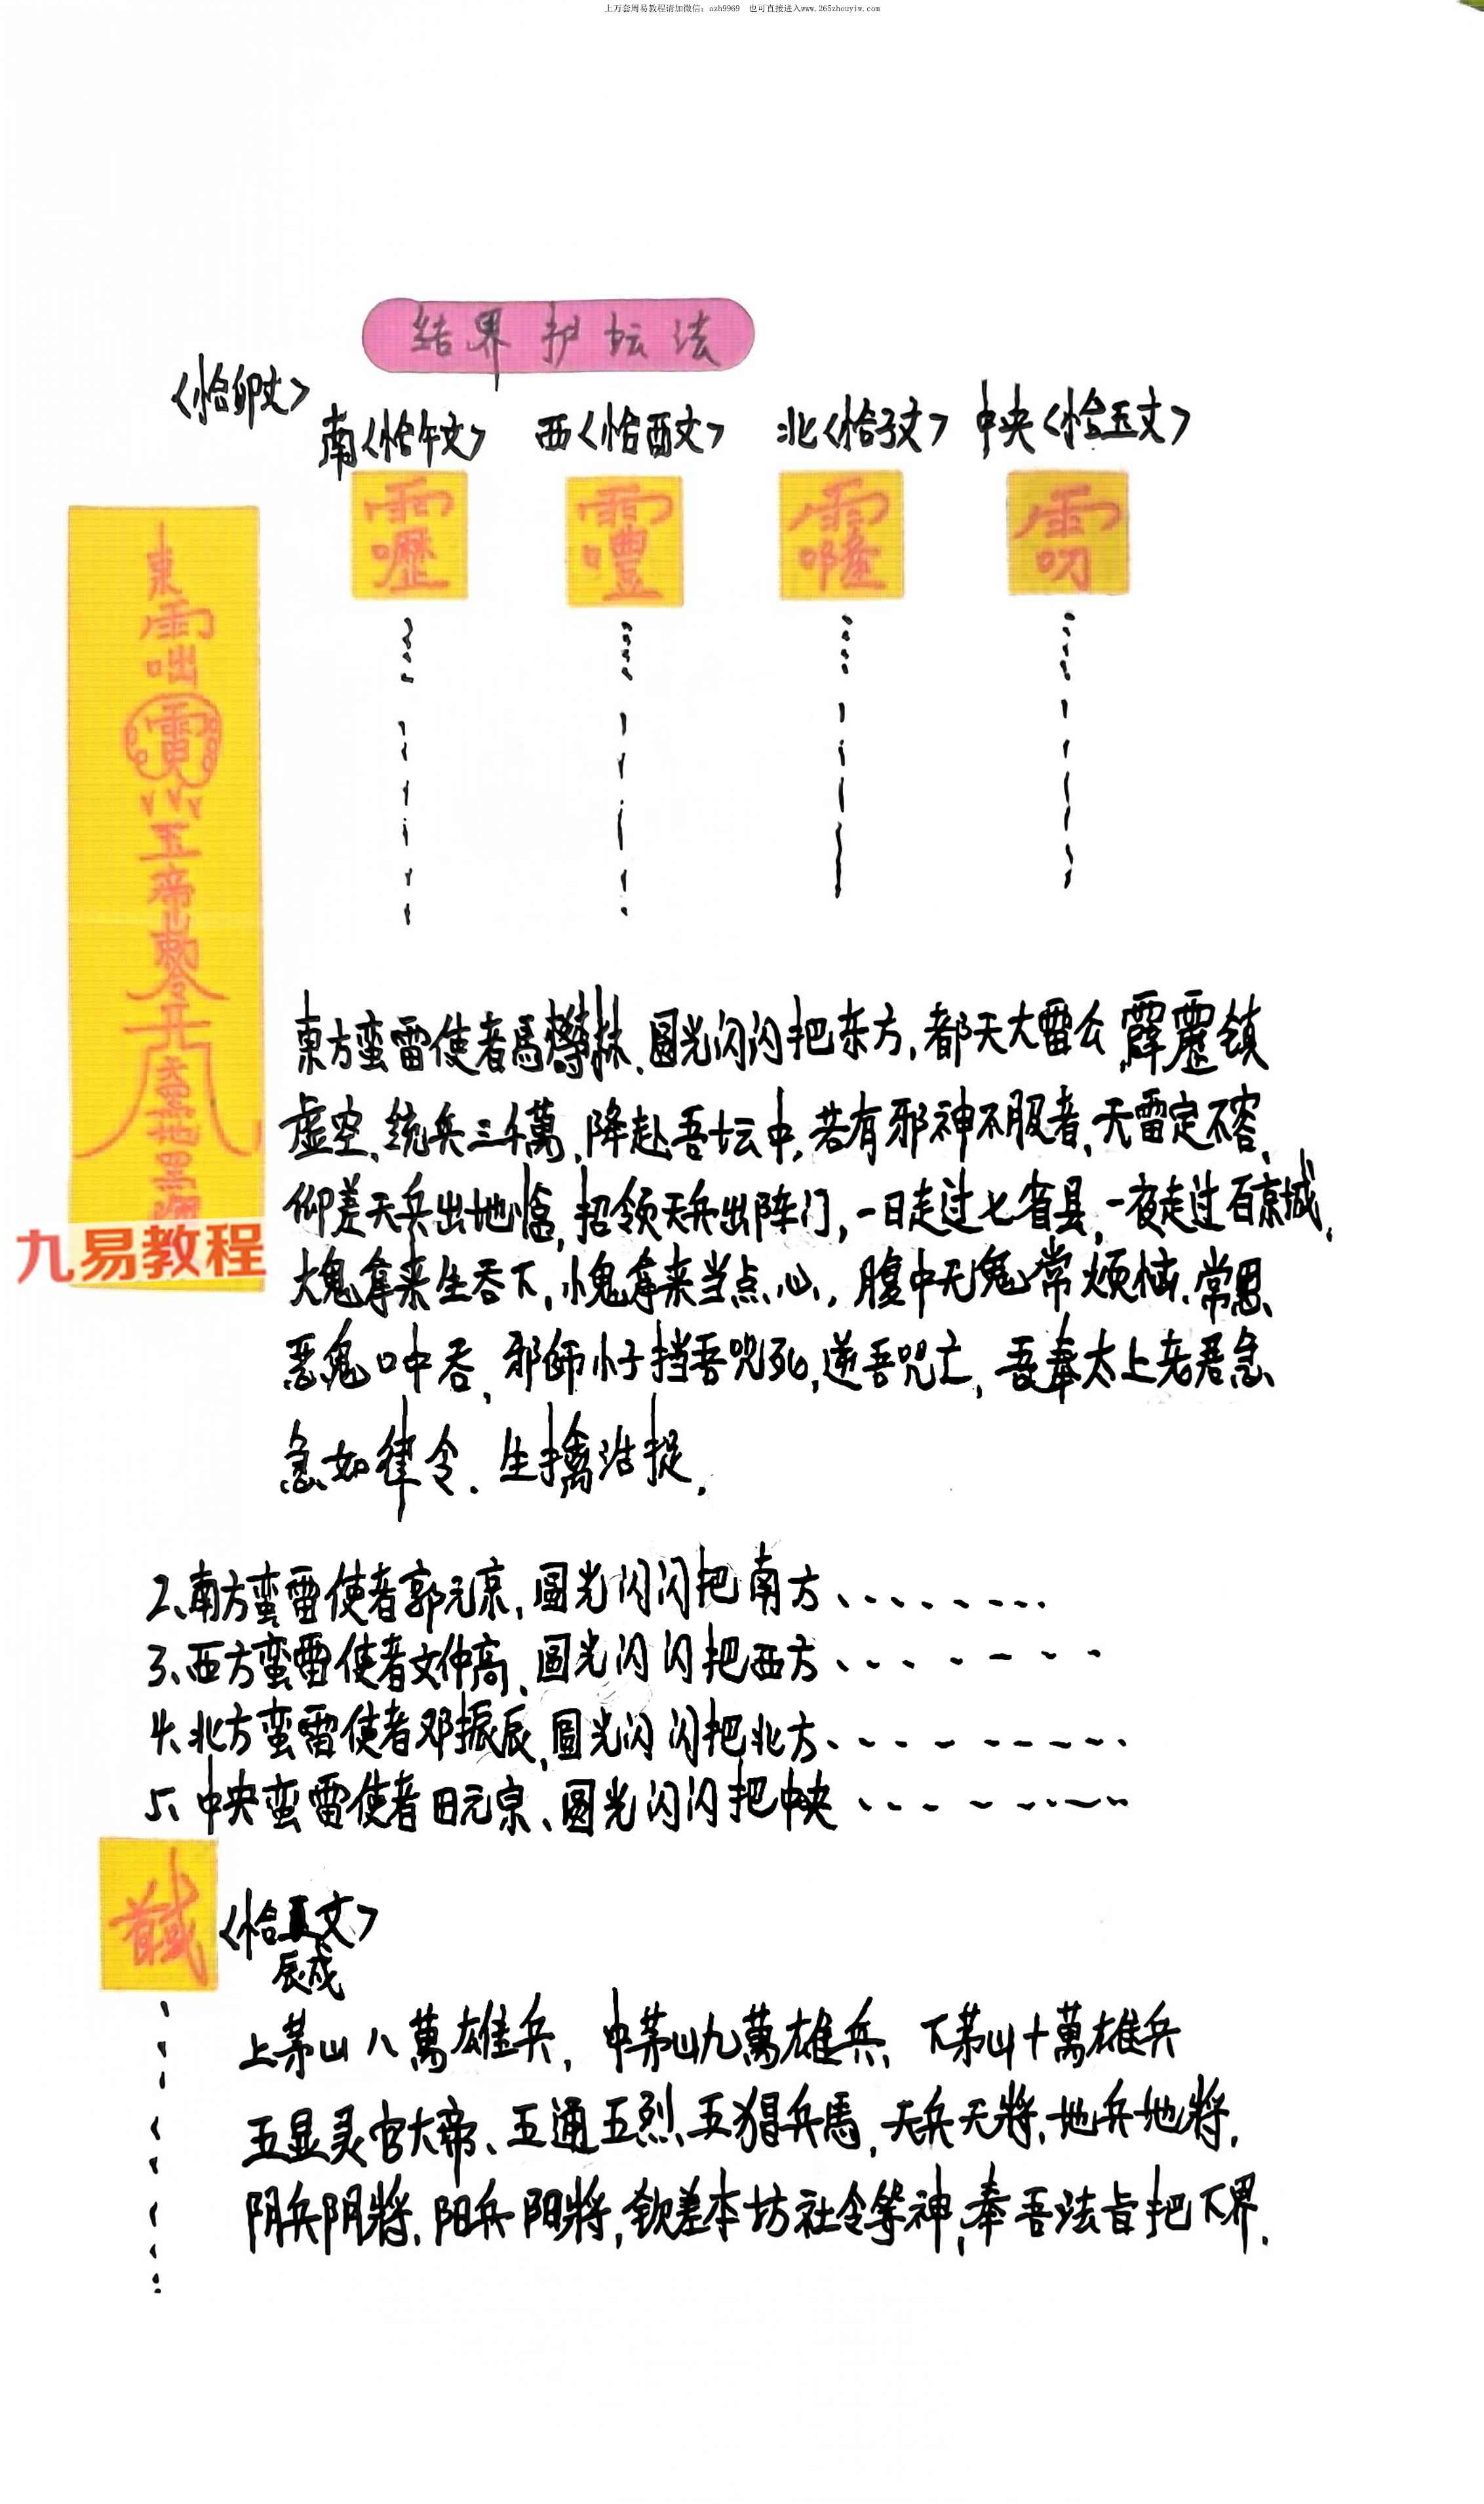 上万套周易教程请加微信：azh9969 也可直接进入www.265zhouyiw.com
结界护坛法
〈恰卯文〉
南〈恰午文〉 西〈恰酉文〉 北〈恰子文〉 中央〈恰玉文〉
東
雷
玉
帝
敕
令
九易教程
東方蛮雷使者馬鬱林、圆光闪闪把东方，都天大雷公，霹雳镇
虚空、统兵三千萬，降赴吾坛中，若有邪神不服者，天雷定不容、
仰差天兵出地，招领天兵出阵门，一日走过七省县，一夜走过百京城，
大鬼拿来生吞下，小鬼拿来当点心，腹中无鬼常烦恼、常思
恶鬼口中吞，邪师小子挡吾咒死，逆吾咒亡，吾奉太上老君急
急如律令．生擒活捉．
2、南方蛮雷使者郭元京，圆光闪闪把南方、
3、西方蛮雷使者文仲高、圆光闪闪把西方、
4、北方蛮雷使者邓振辰，圆光闪闪把北方、
5、中央蛮雷使者田元宗、圆光闪闪把中央
辰戌
上茅山八萬雄兵，中茅山九萬雄兵，下茅山十萬雄兵
五显灵官大帝、五通五烈、五猖兵馬，天兵天将，地兵地将，
阴兵阴将，阳兵阳将，钦差本坊社令等神，奉吾法旨把下界．